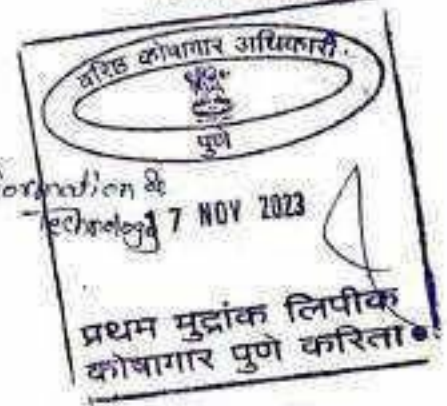 वरिष्ठ कोषागार अधिकारी.
पुणे
formation &
Technology 7 NOV 2023
प्रथम मुद्रांक लिपीक
कोषागार पुणे करिता